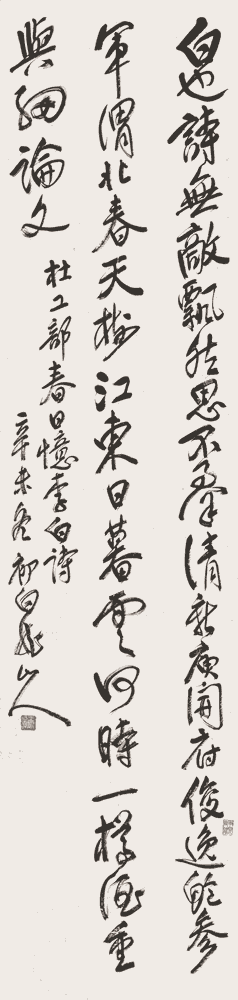 白也詩無敵飄然思不羣清新庾開府俊逸鮑參
軍渭北春天樹江東日暮雲何時一樽酒重
與細論文
杜工部春日憶李白詩
辛未冬初白龍山人